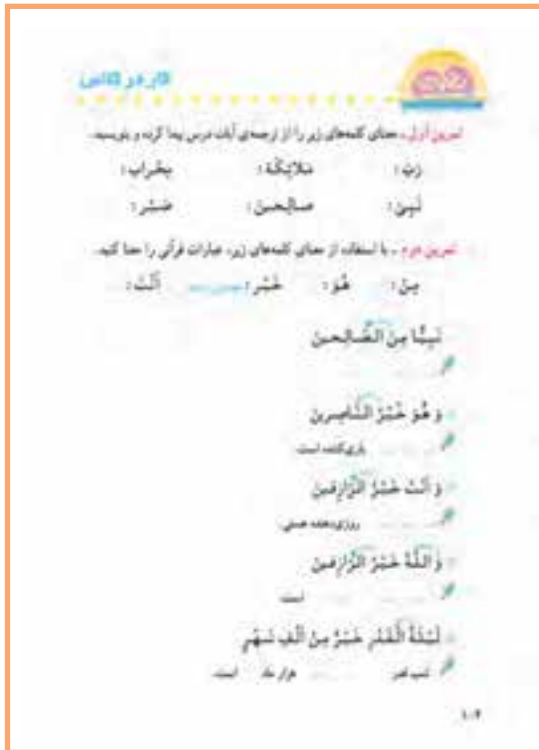 کار در کلاس
تمرین اول ـ معنای کلمه‌های زیر را از ترجمه‌ی آیات درس پیدا کرده و بنویسید.
رَبّ: مَلائِکَة: مِحْراب:
نَبِیّ: صالِحین:
تمرین دوم ـ با استفاده از معنای کلمه‌های زیر، عبارات قرآنی را معنا کنید.
مِنْ: هُوَ: خَیْر: اَنْتَ:
نَبِیًّا مِنَ الصّالِحینَ
وَ هُوَ خَیْرُ النّاصِرینَ
یاری‌کننده است
وَ اَنْتَ خَیْرُ الرّازِقینَ
روزی‌دهنده هستی
وَ اللّٰهُ خَیْرُ الرّازِقینَ
است
لَیْلَةُ الْقَدْرِ خَیْرٌ مِنْ اَلْفِ شَهْرٍ
شب قدر هزار ماه است